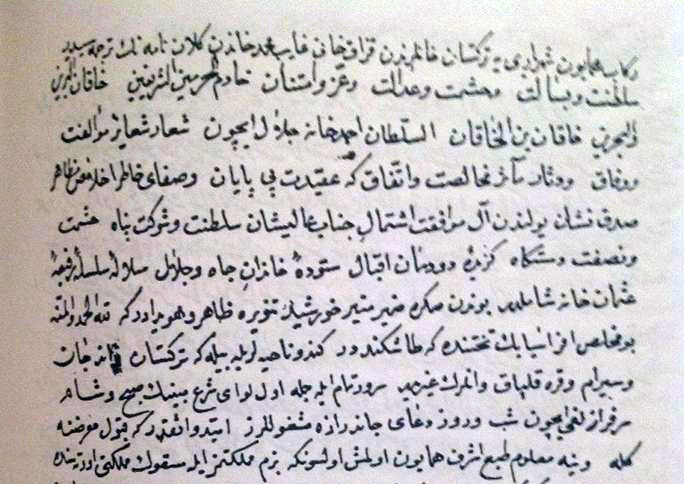 ركاب همايون شهرياری يه تركستان خانلرندن قزاق خانی غايب محمد خاندن كلان نامه نك ترجمه سيدر
سلطنت وبسالت وحشمت وعدالت وعز وامتنان خادم الحرمين الشريفين خاقان البرين
والبحرين خاقان بن الخاقان السلطان احمد خانه جلال ايچون شعار شعاير مؤالفت
ووفاق ودثار مآثر مخالصت واتفاق كه عقيدت بی پايان وصفای خاطر اخلاص مظاهر
صدق نشان برلندن آل موافقت اشتمال جناب عاليشان سلطنت وشوكت پناه حشمت
ونصفت دستكاه كزيدهٔ دودمان اقبال ستودهٔ خاندان جاه وجلال سلالهٔ سلسلهٔ رفيعهٔ
عثمان خانه شاملدر بوندن صكره ضمير منير خورشيد تنويره ظاهر وهويدادر كه لله الحمد والمنه
بو مخلص افراسيابك تختنده كه طاشكنددر كندو ناحيه لريله بيله كه تركستان اندجان
وسيرام وقره قلپاق وانلرك غيريدر سرور تام ايله جمله اول لوای شرع مبينك صبح وشام
سرفرازلغی ايچون شب وروز دعای جاندرازه مشغوللرز اميد واثقدر كه قبول معرضنه
كله وينه معلوم طبع اشرف همايون اولمش اولسونكه بزم مملكتمز ايله مسقوك مملكتی اورته سنده